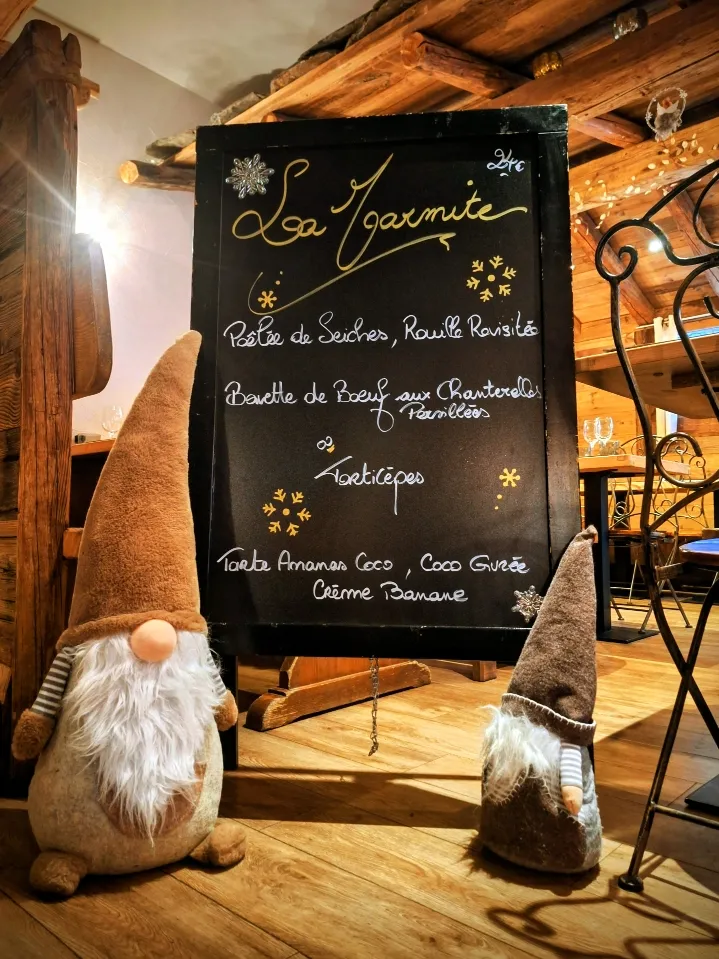 24€
La Marmite
Poêlée de Seiches, Rouille Revisitée
Bavette de Boeuf aux Chanterelles
Persillées
où
Torticêpes
Tarte Ananas Coco, Coco Givrée
Crème Banane